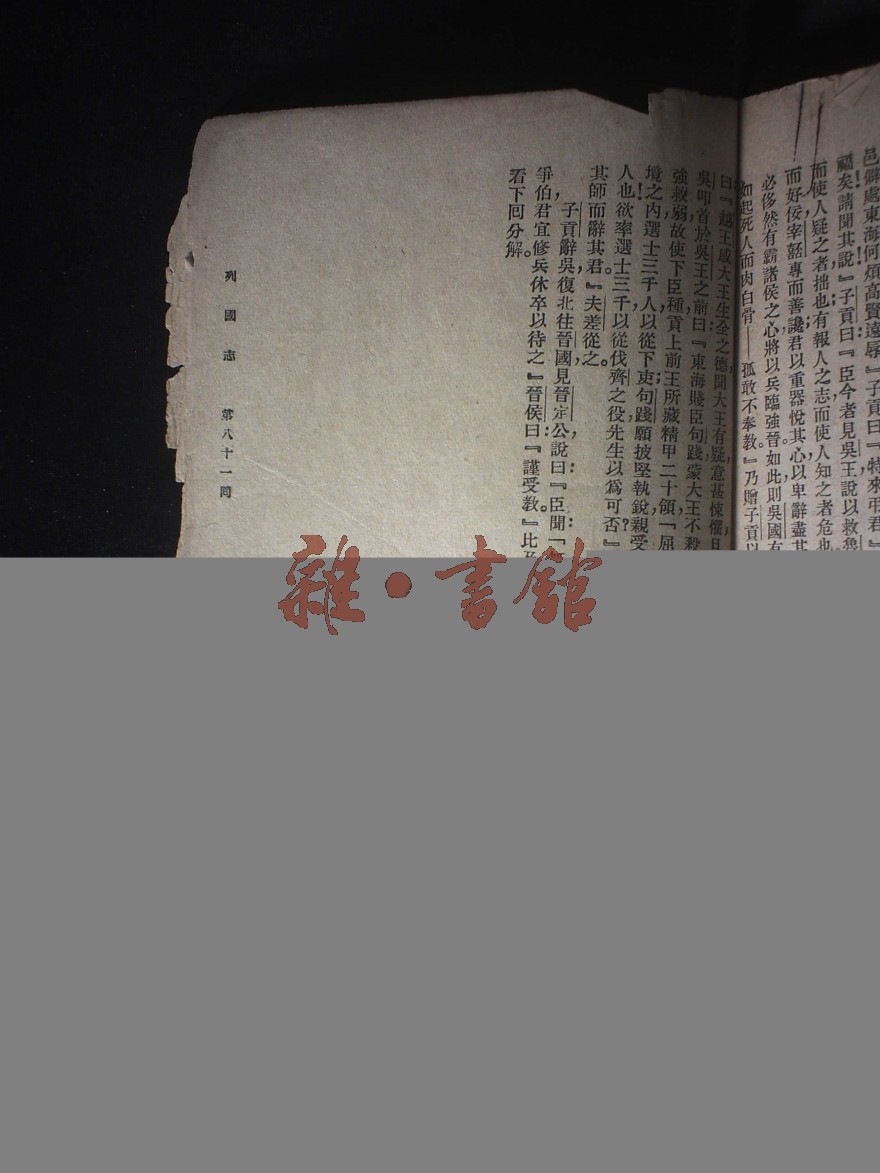 邑僻處東海何煩高賢遠辱』子貢曰『特來弔君』
福矣請聞其說』子貢曰『臣今者見吳王說以救魯
而使人疑之者拙也有報人之志而使人知之者危也
而好佞宰嚭專而善讒君以重器悅其心以卑辭盡其
必侈然有霸諸侯之心將以兵臨強晉如此則吳國有
如起死人而肉白骨——孤敢不奉教』乃贈子貢以
曰『越王感大王生全之德聞大王有疑意甚悚懼
吳叩首於吳王之前曰『東海賤臣句踐蒙大王不殺
強救弱故使下臣種貢上前王所藏精甲二十領「屈
境之內選士三千人以從下吏句踐願披堅執銳親受
人也欲率選士三千以從伐齊之役先生以爲可否？』
其師而辭其君』夫差從之。
子貢辭吳，復北往晉國見晉定公說曰：『臣聞「
爭伯君宜修兵休卒以待之』晉侯曰：『謹受教。』比
看下回分解。
列國志 第八十一回
雜·書館